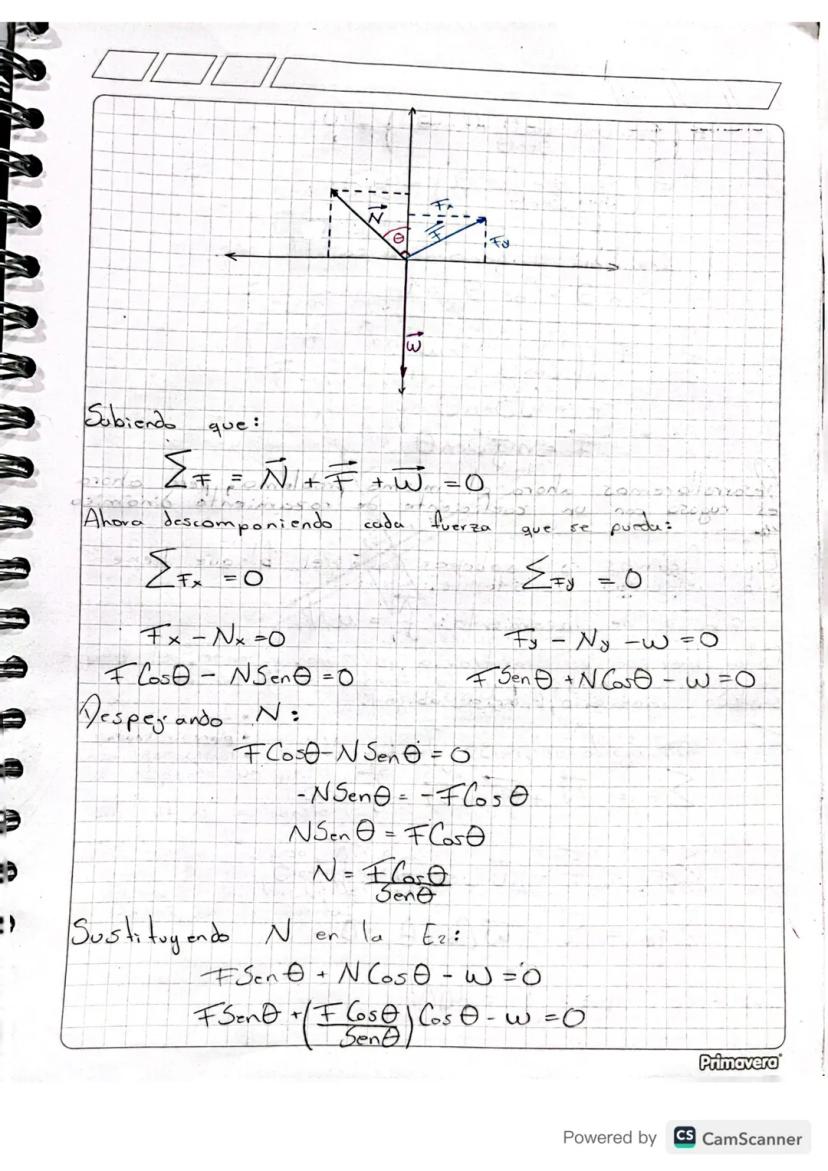 N⃗
θ
Fx
F⃗
Fy
w⃗
Sabiendo que:
∑F = N⃗ + F⃗ + w⃗ = 0
Ahora descomponiendo cada fuerza que se pueda:
∑Fx = 0    ∑Fy = 0
Fx - Nx = 0    Fy - Ny - w = 0
FCosθ - NSenθ = 0    FSenθ + NCosθ - w = 0
Despejando N:
FCosθ - NSenθ = 0
-NSenθ = -FCosθ
NSenθ = FCosθ
N = FCosθ / Senθ
Sustituyendo N en la E2:
FSenθ + NCosθ - w = 0
FSenθ + (FCosθ / Senθ) Cosθ - w = 0
Primavera
Powered by CS CamScanner